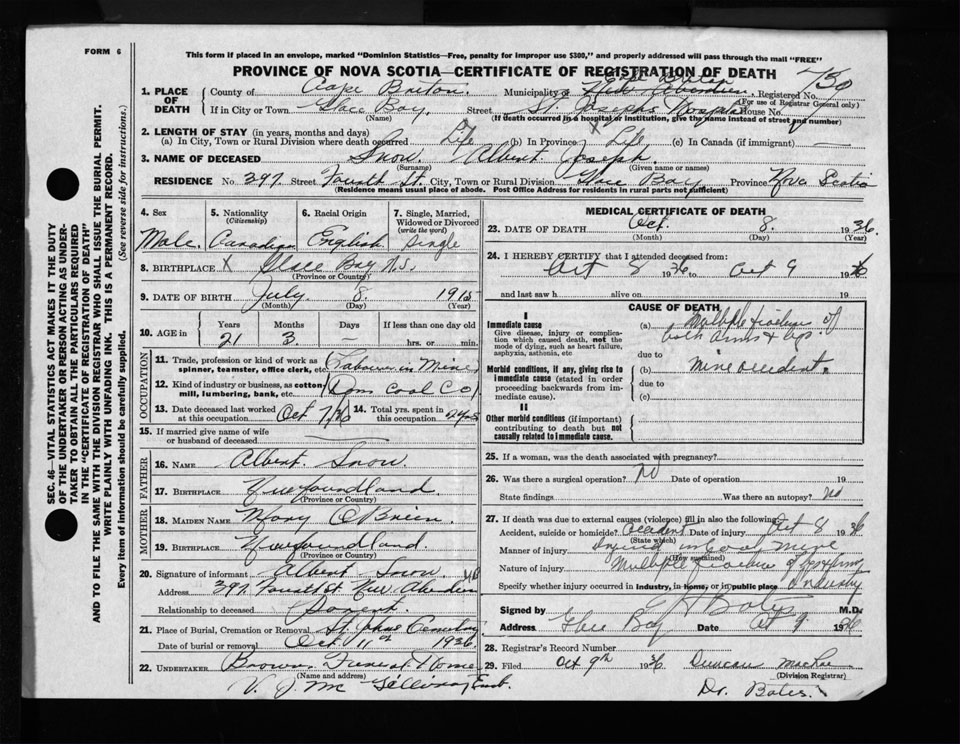 FORM 6
This form if placed in an envelope, marked "Dominion Statistics—Free, penalty for improper use $300," and properly addressed will pass through the mail "FREE"
PROVINCE OF NOVA SCOTIA—CERTIFICATE OF REGISTRATION OF DEATH
750
1. PLACE OF DEATH
County of Cape Breton. Municipality of Registered No.
(For use of Registrar General only)
If in City or Town Glace Bay, Street St. Josephs Hospital House No.
(Name) (If death occurred in a hospital or institution, give the name instead of street and number)
2. LENGTH OF STAY (in years, months and days)
(a) In City, Town or Rural Division where death occurred Life (b) In Province Life (c) In Canada (if immigrant) —
3. NAME OF DECEASED Snow. Albert Joseph.
(Surname) (Given name or names)
RESIDENCE No. 397 Street Fourth St. City, Town or Rural Division Glace Bay Province Nova Scotia
(Residence means usual place of abode. Post Office Address for residents in rural parts not sufficient)
4. Sex Male.
5. Nationality (Citizenship) Canadian
6. Racial Origin English
7. Single, Married, Widowed or Divorced (write the word) Single
8. BIRTHPLACE X Glace Bay N.S.
(Province or Country)
9. DATE OF BIRTH July 8. 1915
(Month) (Day) (Year)
10. AGE in Years Months Days If less than one day old
21 3 — hrs. or min.
OCCUPATION
11. Trade, profession or kind of work as spinner, teamster, office clerk, etc. Labourer in Mine
12. Kind of industry or business, as cotton mill, lumbering, bank, etc. (Dom Coal Co)
13. Date deceased last worked at this occupation Oct 7/36
14. Total yrs. spent in this occupation 2 yrs
15. If married give name of wife or husband of deceased —
FATHER
16. NAME Albert Snow.
17. BIRTHPLACE Newfoundland
(Province or Country)
MOTHER
18. MAIDEN NAME Mary O'Brien.
19. BIRTHPLACE Newfoundland.
(Province or Country)
20. Signature of informant Albert Snow.
Address 397 Fourth St. New Aberdeen
Relationship to deceased Parent.
21. Place of Burial, Cremation or Removal St. Johns Cemetery
Date of burial or removal Oct 11th 1936.
22. UNDERTAKER Browns Funeral Home
(Name and address)
V. J. Mc Gillivray Emb.
MEDICAL CERTIFICATE OF DEATH
23. DATE OF DEATH Oct. 8. 1936.
(Month) (Day) (Year)
24. I HEREBY CERTIFY that I attended deceased from:
Oct 8 1936 to Oct 9 1936
and last saw h alive on 19
CAUSE OF DEATH
I
Immediate cause
Give disease, injury or complication which caused death, not the mode of dying, such as heart failure, asphyxia, asthenia, etc
(a) Multiple fractures of both arms & legs
due to
Morbid conditions, if any, giving rise to immediate cause (stated in order proceeding backwards from immediate cause).
(b) mine accident.
due to
(c)
II
Other morbid conditions (if important) contributing to death but not causally related to immediate cause.
25. If a woman, was the death associated with pregnancy?
26. Was there a surgical operation? No Date of operation 19
State findings Was there an autopsy? No
27. If death was due to external causes (violence) fill in also the following:
Accident, suicide or homicide? accident Date of injury Oct 8 1936
(State which)
Manner of injury Injured in Coal Mine
(How sustained)
Nature of injury Multiple fracture of
Specify whether injury occurred in Industry, in home, or in public place Industry
Signed by Bates M.D.
Address Glace Bay Date Oct 9 1936
28. Registrar's Record Number
29. Filed Oct 9th 1936 Duncan MacRae
(Division Registrar)
Dr. Bates.
SEC. 46—VITAL STATISTICS ACT MAKES IT THE DUTY
OF THE UNDERTAKER OR PERSON ACTING AS UNDER-
TAKER TO OBTAIN ALL THE PARTICULARS REQUIRED
IN THE "CERTIFICATE OF REGISTRATION OF DEATH"
AND TO FILE THE SAME WITH THE DIVISION REGISTRAR WHO SHALL ISSUE THE BURIAL PERMIT.
WRITE PLAINLY WITH UNFADING INK. THIS IS A PERMANENT RECORD.
Every item of information should be carefully supplied. (See reverse side for instructions.)